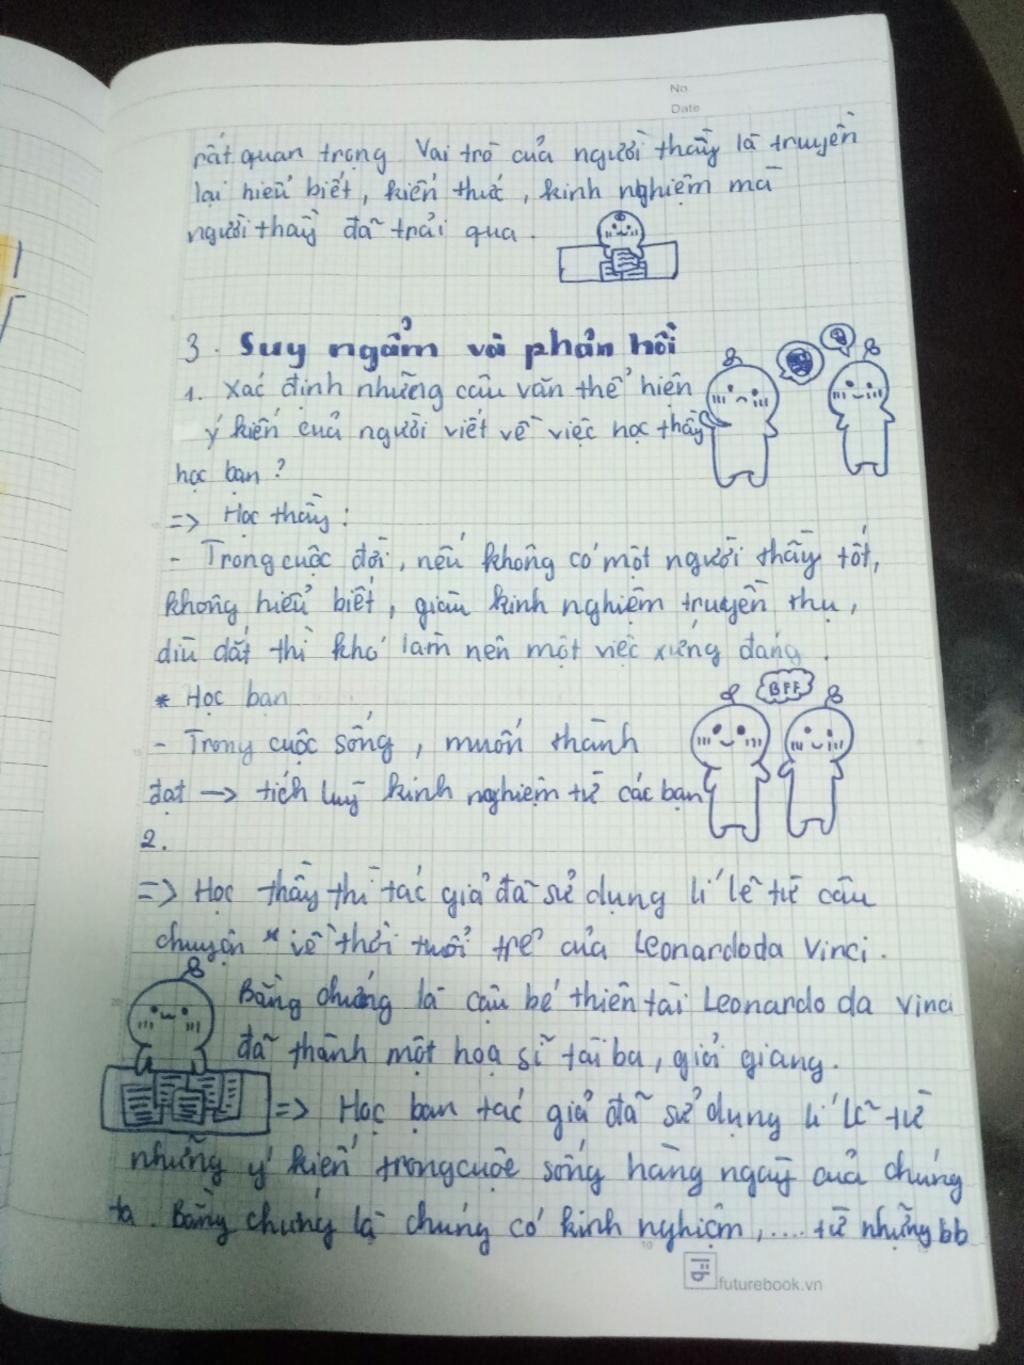 No.
Date
rất quan trọng Vai trò của người thầy là truyền
lại hiểu biết, kiến thức, kinh nghiệm mà
người thầy đã trải qua.
3. Suy ngẩm và phản hồi
1. Xác định những câu văn thể hiện
ý kiến của người viết về việc học thầy
học bạn?
=> Học thầy:
- Trong cuộc đời, nếu không có một người thầy tốt,
không hiểu biết, giàu kinh nghiệm truyền thụ,
dìu dắt thì khó làm nên một việc xứng đáng.
* Học bạn
BFF
- Trong cuộc sống, muốn thành
đạt -> tích luỹ kinh nghiệm từ các bạn
2.
=> Học thầy thì tác giả đã sử dụng lí lẽ từ câu
chuyện * về thời tuổi trẻ của Leonardoda Vinci.
Bằng chứng là cậu bé thiên tài Leonardo da Vinci
đã thành một hoạ sĩ tài ba, giỏi giang.
=> Học bạn tác giả đã sử dụng lí lẽ từ
những ý kiến trong cuộc sống hàng ngày của chúng
ta. Bằng chứng là chúng có kinh nghiệm, .... từ những bb
futurebook.vn